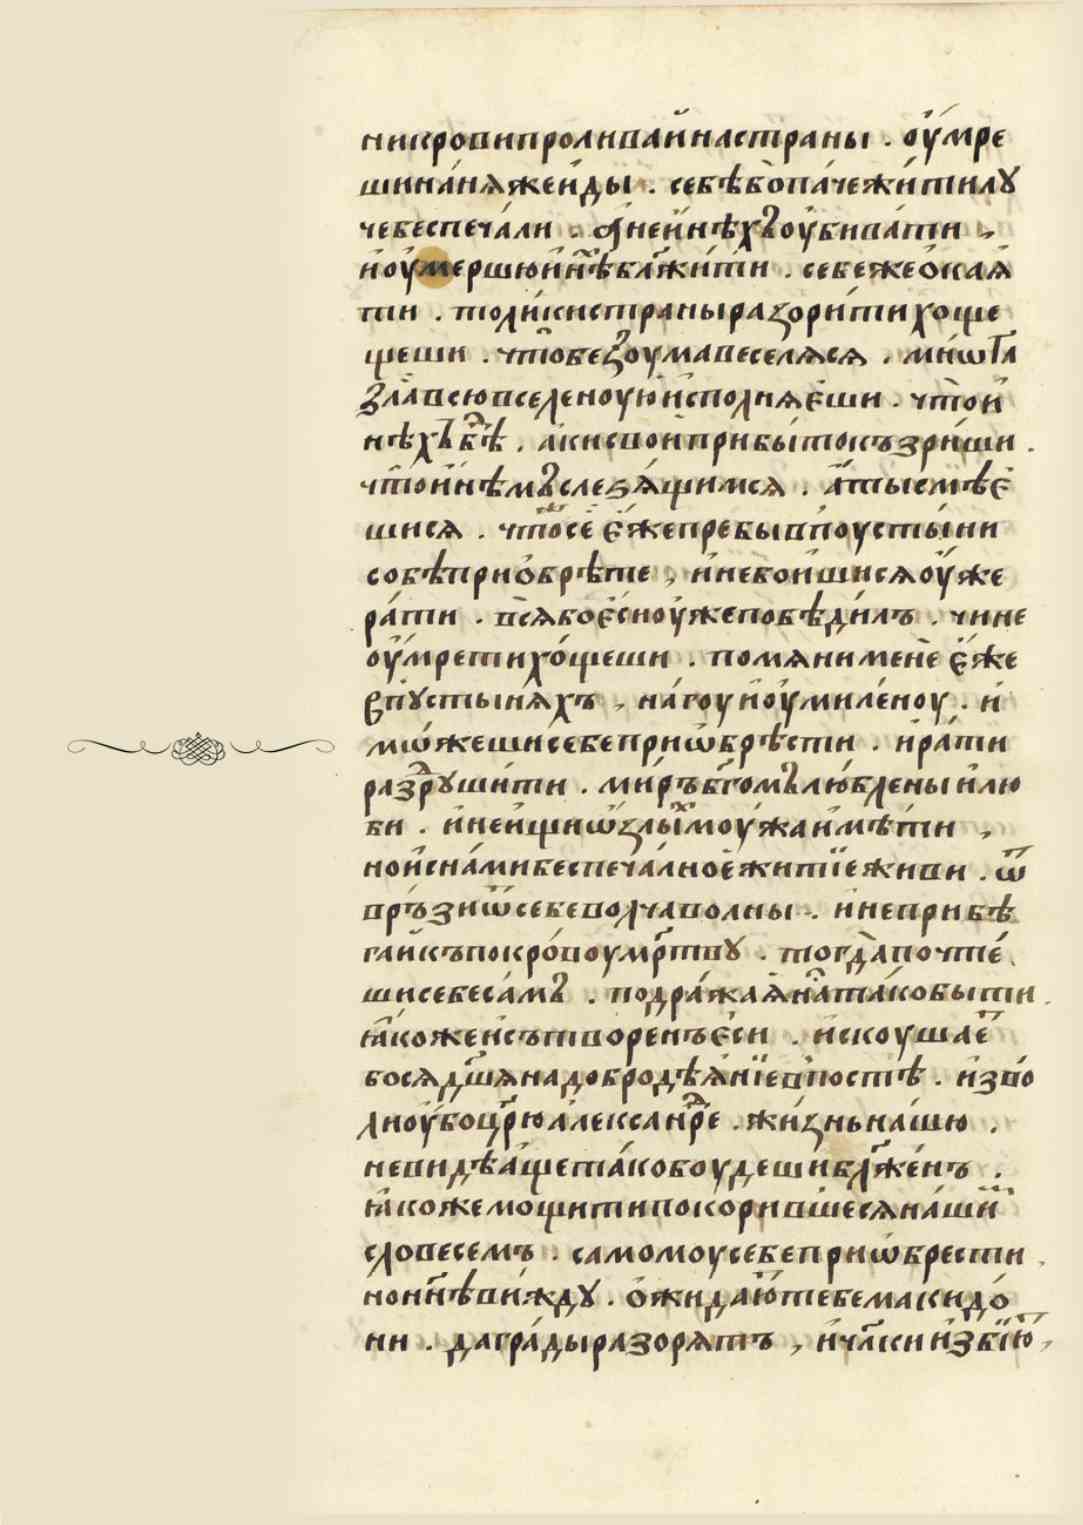 никровипроливайнастраны . оумре
шина́ня жеи́ды . себѣ́бопа́чежи́тилꙋ
чебеспеча́ли . ѻнеи́нѣ́хъоу́бива́ти ,
и́оумершюи́нн҃ѣблж҃и́ти . себежеокаꙗ
ти . толи́кистраныразори́тихоще
щеши . чтобезоумавеселѧсѧ . мниѡ
злавсювселеноую́исполнѧ́еши . чтои
нѣ́хъбѣ . а́кисвои́прибытокъзри́ши .
чтои́нѣмъслезѧ́щимсѧ . а҆тысмѣе
шисѧ . чтосе́е́жепребывпоусты́ни
собѣприобрѣте , и́небои́шисѧоу́же
ра́ти . всѧбое́сноу́жепобѣди́лъ . чине
оу́мретихо́щеши . помѧнимене е́же
впꙋстынѧхъ , на́гоуи́оумиле́ноу . и́
мѡ́жешисебеприѡбрѣсти . ира́ти
раздрꙋши́ти . ми́ръбг҃омълю́бленыи́лю
би . и́неи́щиѿзлы́хмоу́жаи́мѣ́ти ,
нои́сна́мибеспеча́лноежитїеживи . ѿ
връ́зиѿсебеволчаволны . и́неприбѣ
гаи́къпокро́воумр҃твꙋ . тогдапочте́
шисебеса́мъ . подра́жаѧна́мта́кобыти .
ꙗ́кожеи́сътворенъе́си . и́скоушае
босѧдш҃ѧнадобродѣѧ́нїевпостѣ . и́зво
лиоу́боцр҃юалександре . жи́зньна́шю .
невидѣа́щета́кобоудешиблж҃е́нъ .
ꙗ́кожемощитипокори́вшесѧна́ши
словесемъ . самомоусебеприѡбрести .
нонн҃ѣви́ждꙋ . о́жида́ютебемакидо́
ни . дагра́дыразорѧтъ , и́чл҃кии́збїю ,